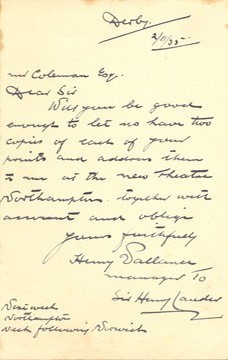 Derby.
2/11/35
Mr Coleman Esq.
Dear Sir
Will you be good
enough to let us have two
copies of each of your
prints and address them
to me at the New Theatre
Northampton. together with
account and oblige
Yours faithfully
Henry
manager to
Sir Henry Lauder
Next week
Northampton
week following Norwich